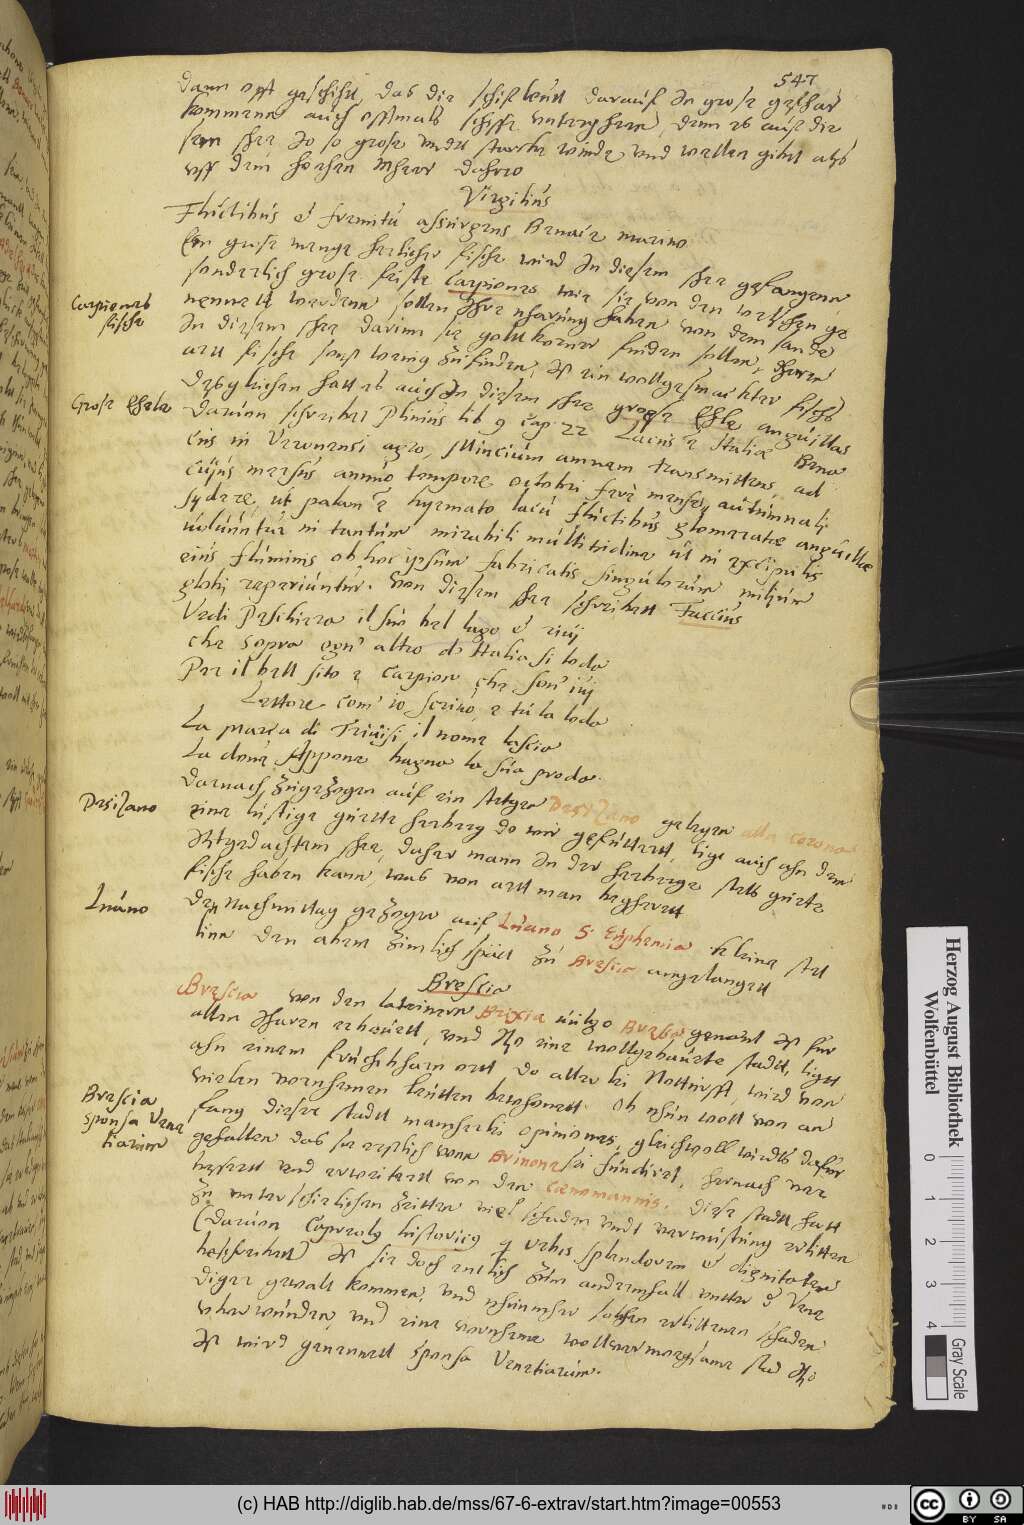 547
dann offt geschicht, das die schifleutt darauf In grose gefhar
kommenn auch offtmals schiffe unterghenn, denn es auf die
sem shee So so grose unndt starcke winde, und wellen gibtt als
uff dem hohen Mheer dahero
Virgilius
Fluctibus et fremitu assurgens Benace marino
Ein grose menge herlicher fische wird In diesem shee gefangenn
sonderlich grose feiste Carpiones wie sie von den welschen ge
nennett werdenn, sollen Ihre nharung haben von dem sande
In diesem shee darinn sie goltt korner finden sollen, dheren
artt fische sonst wenig zufinden, Ist ein wollgeschmackter fisch
Carpiones
fische
Desgleichen hatt es auch In diesem shee grose Ehle anguillas
Grose Ehele
davonn schreibet Plinius lib 9 cap 22 Lacus e Italiæ Bena
cus in Veronensi agro, Mincium amnem transmittens, ad
cujus mersus annuo tempore octobri fere mense, autumnali
sydere, ut palam e hyemato lacu fluctibus glomeratæ anguillæ
uoluuntur in tantum mirabili multitudine ut in excipulis
eius fluminis ob hoc ipsum fabricatis singulorum milium
globi reperiuntur. Von diesem shee schreibett Faccius
Vedi Peschiera il suo bel lago e riuj
che sopra ogn' altro d' Italia si loda
Per il bell sito e Carpion che son' iuj
Lettore com' io scriuo, e tu la loda
La marca di Triuisi il nome lascio
La doue Appone bagna la sua proda.
Darnach zugezogen auf ein stetgen Desizano gelegen alla corona
Desizano
eine lustige guette herberg do wir gefuttertt, ligt auch ahn dem
Itzgedachtem shee, daher mann In der herberge stets guete
fische haben kann, was von artt man begherett
Den Nachmittag gezogen auf Luano S. Euphemia kleine stet
Luano
linn den abent zimlich spätt zu Brescia angelangett
Brescia
Brescia von den lateinern Brixia unitzo Bresse genand Ist für
allen Iharen erbauett, und Itzo eine wollgebauete stadtt, ligtt
ahn einem fruchtbharn ortt do aller lei Notturfft, wird von
vielen vornhemen leutten bewohnett. Ob nhun woll von an
Brescia
sponsa Vene
tiarum
fang dieser stadtt mancherlei opiniones, gleichwoll wirdts dafur
gehalten das sie erstlich vonn Brinone sei fundiret, hernach ver
bessert und erweitertt von den Cœnomannis. Diese stadtt hatt
zu unterschietlichen zeitten viel schaden undt verwustung erlitten
(davonn Capreoly historicus q Urbis splendorem et dignitatem
beschreibett) Ist sie doch entlich zum andernhall unter d Vene
diger gewalt kommen, und nhunmher solchen erlittenen schaden
uberwunden, und eine vornheme wollvermogsame stad Itzo
Ist wird genennett sponsa Venetiarum.
Herzog August Bibliothek
Wolfenbüttel
0 1 2 3 4
Gray Scale
(c) HAB http://diglib.hab.de/mss/67-6-extrav/start.htm?image=00553
cc BY SA